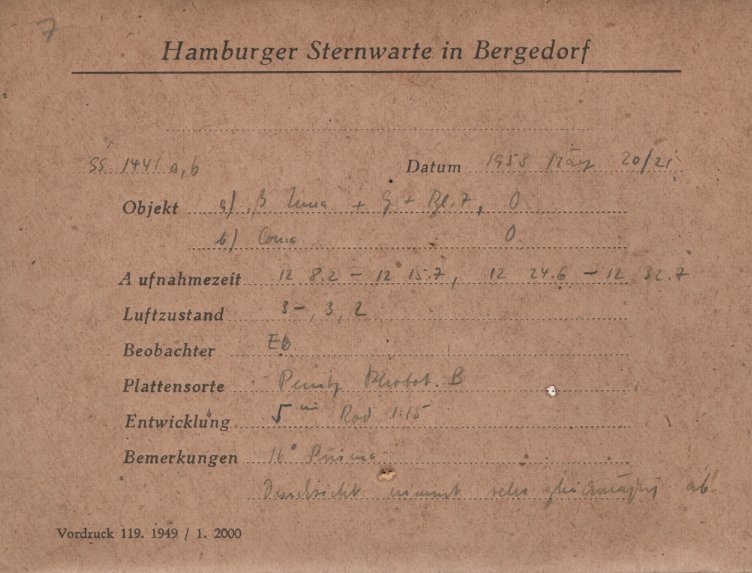 7
Hamburger Sternwarte in Bergedorf
SS 1441 a,b Datum 1953 März 20/21
Objekt a) β + G + Bl. 7, 0
b) Coma 0
Aufnahmezeit 12 8.2 – 12 15.7, 12 24.6 – 12 32.7
Luftzustand 3–, 3, 2
Beobachter Eb
Plattensorte Perutz B
Entwicklung 5 min Rod 1:15
Bemerkungen 16° Prisma
Durchsicht nimmt sehr gleichmäßig ab
Vordruck 119. 1949 / 1. 2000